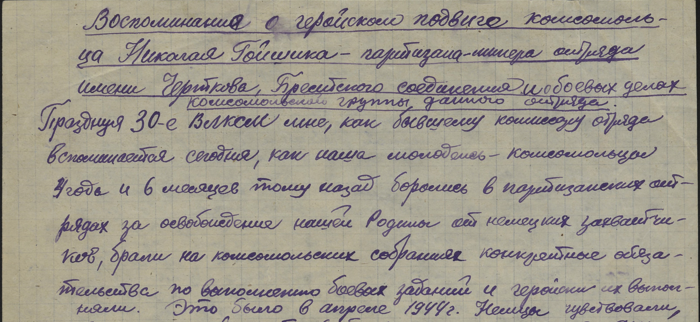 Воспоминания о геройском подвиге комсомоль-
ца Николая Гойшика – партизана-минера отряда
имени Черткова, Брестского соединения и о боевых делах
комсомольской группы данного отряда.
Празднуя 30-е ВЛКСМ мне, как бывшему комиссару отряда
вспоминается сегодня, как наша молодежь – комсомольцы
4 года и 6 месяцев тому назад боролись в партизанских от-
рядах за освобождение нашей Родины от немецких захватчи-
ков, брали на комсомольских собраниях конкретные обяза-
тельства по выполнению боевых заданий и геройски их выпол-
няли. Это было в апреле 1944 г. Немцы чувствовали,